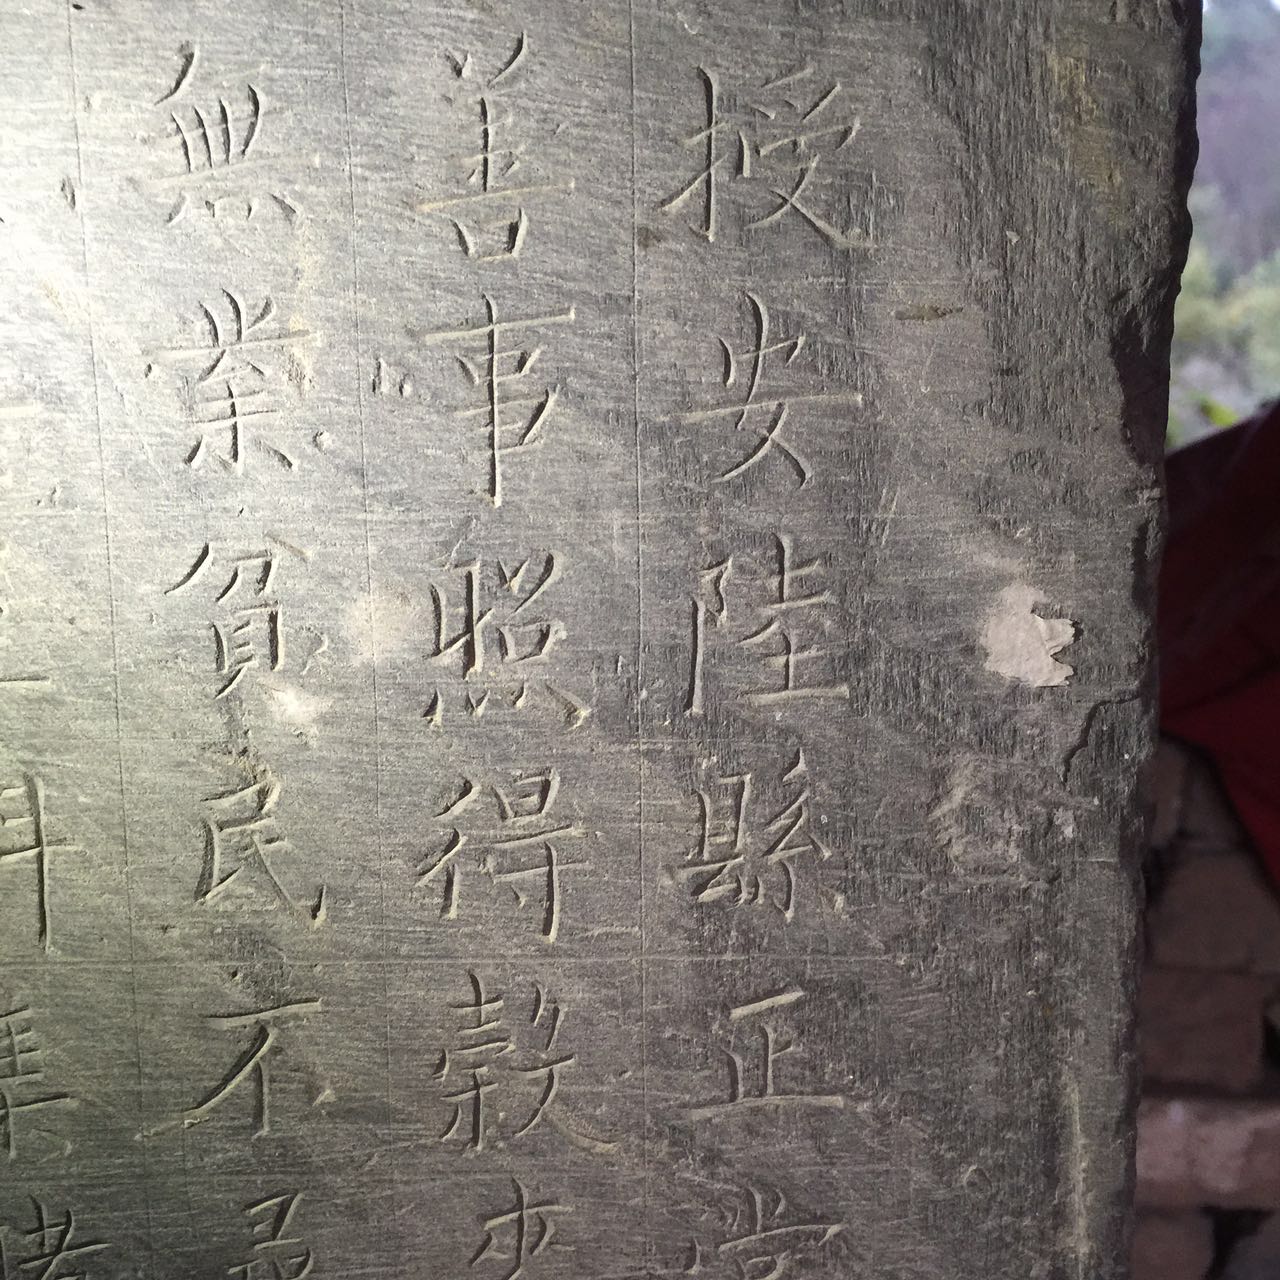 授安陸縣正堂
善事照得穀來
無業貧民不